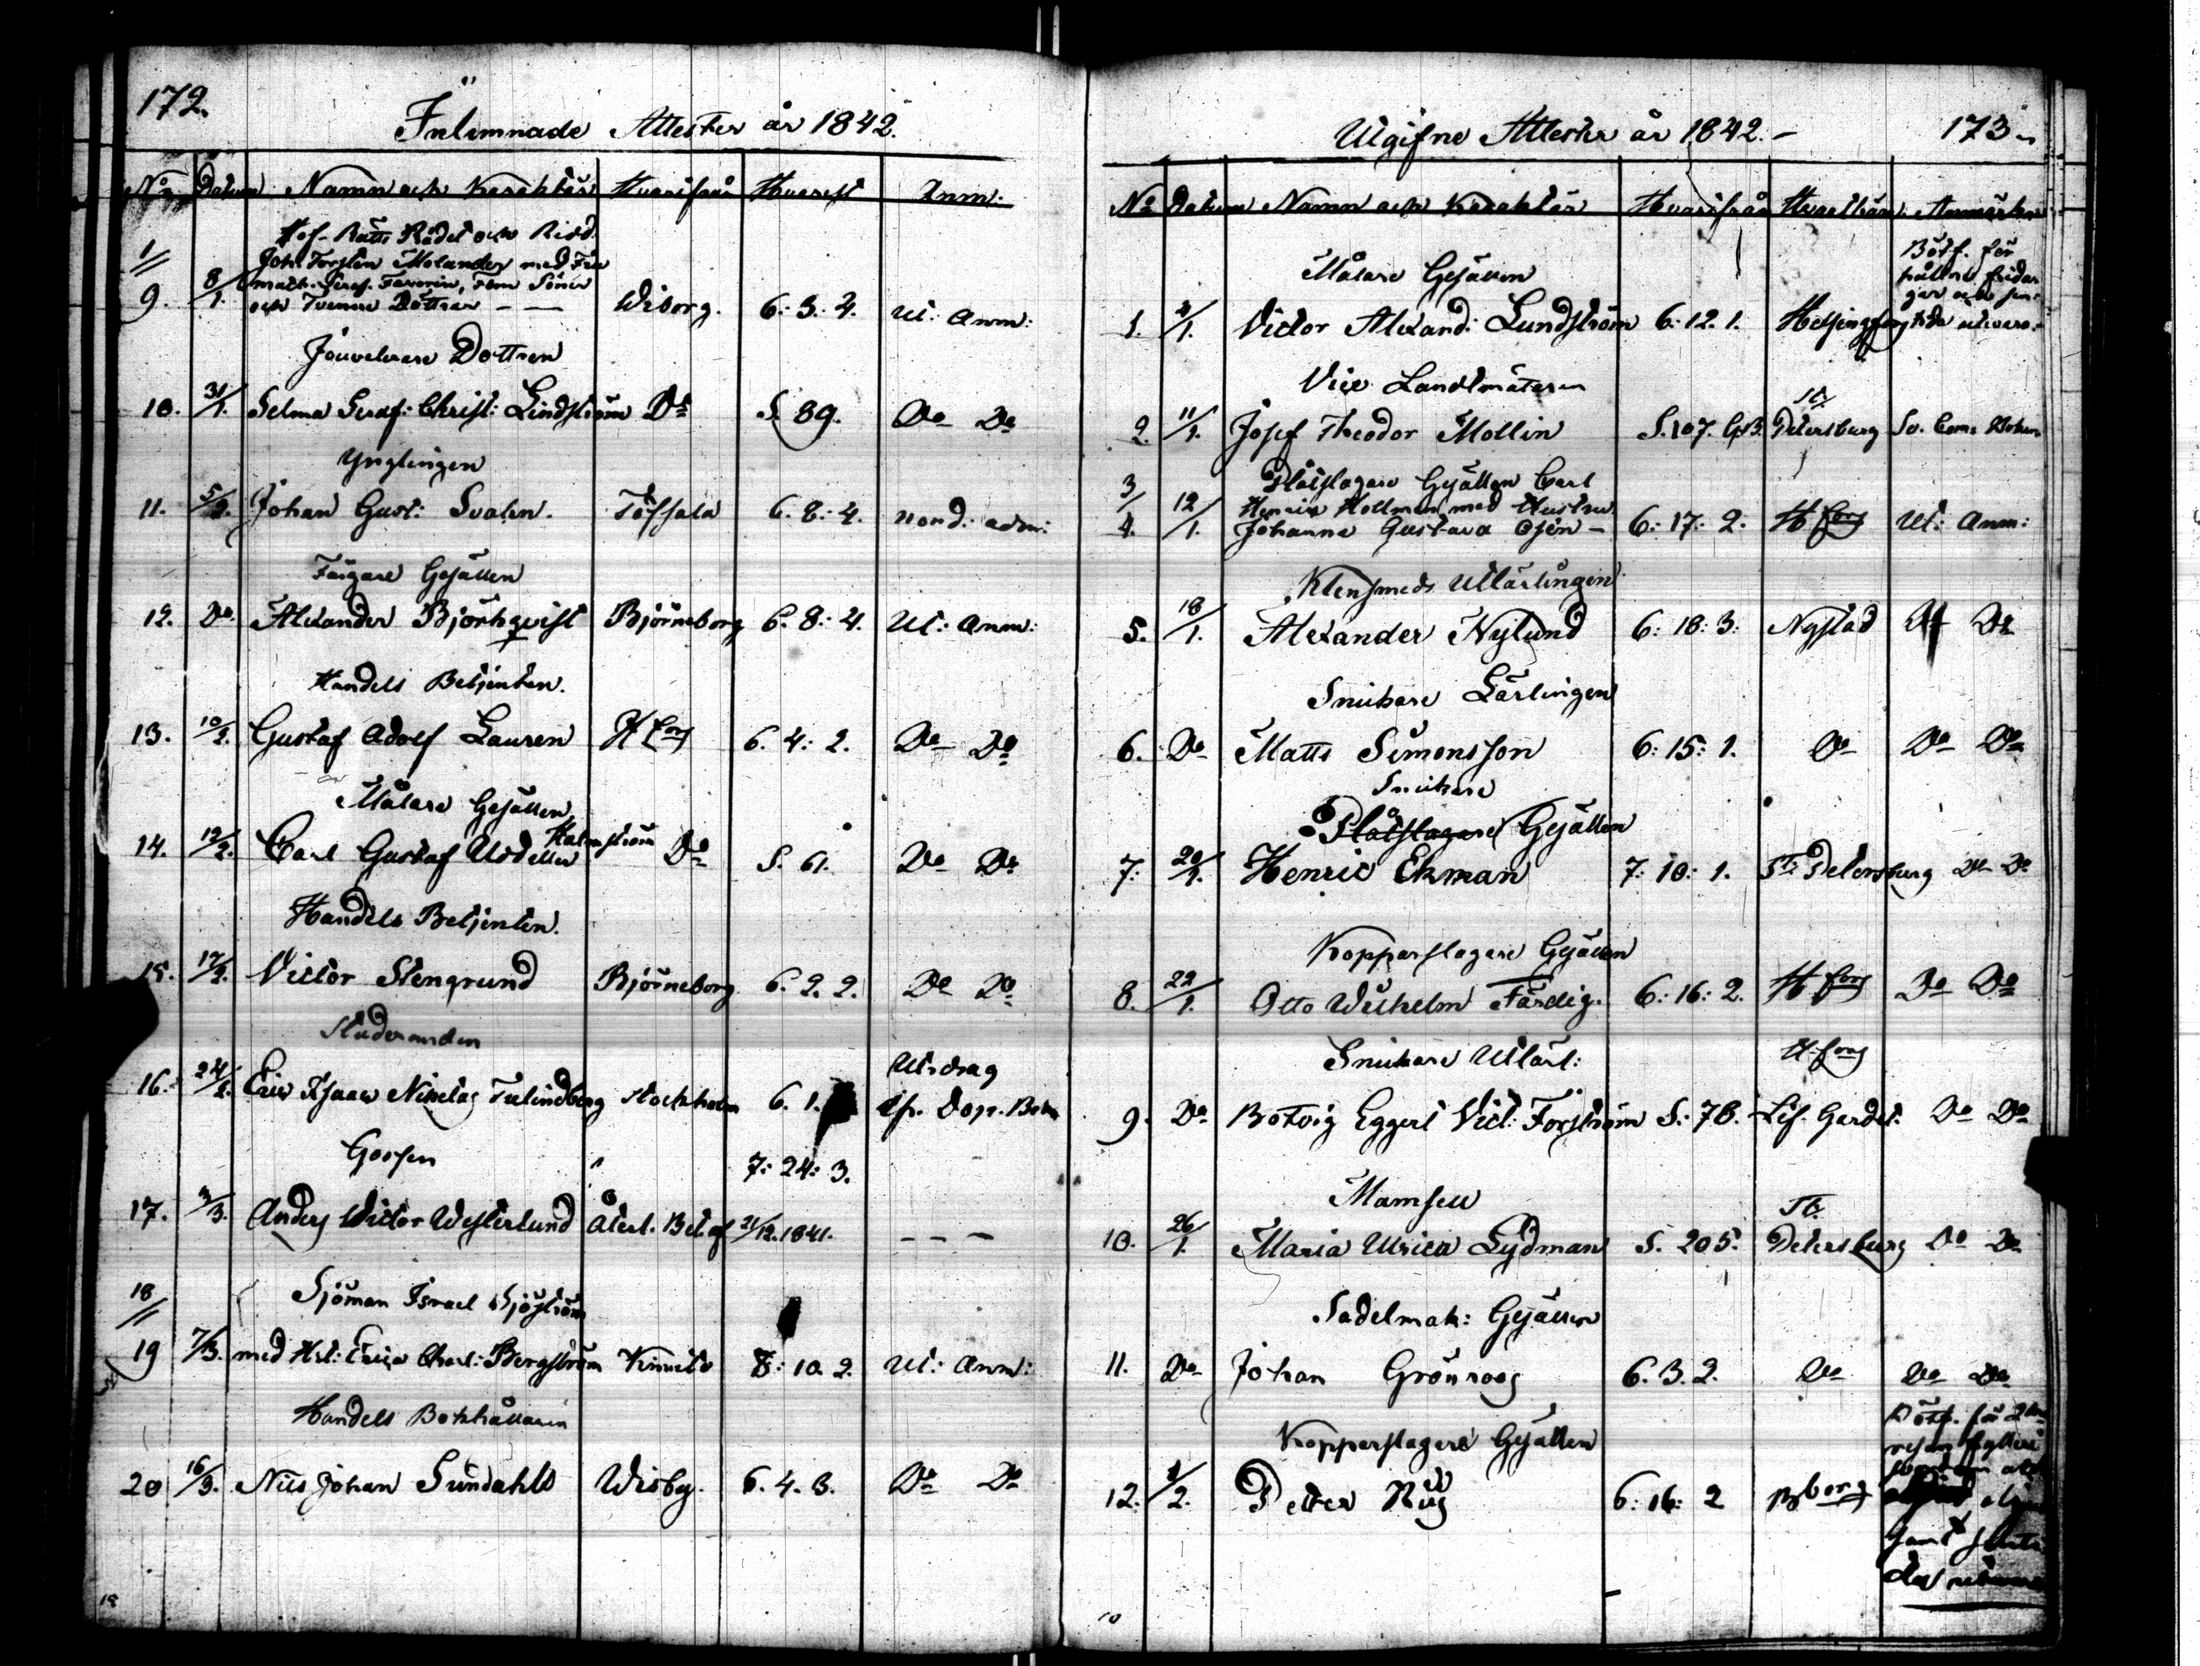 172.
Inlemnade Attester år 1842.
No Datum Namn och Karakter Hvarifrån Hvarest Anm.
1 Hof-Rätts Rådet och Ridd.
Joh: Torsten Molander med Fru
9. 8/1. Seraf. Favorin, Fem Söner
och Tvenne Döttrar - - Wiborg. 6. 3. 4. Ut: Anm:
Jouvelerare Dottren
10. 31/1. Selma Seraf: Christ: Lindström Do S. 89. Do Do
Ynglingen
11. 5/2. Johan Gust: Svalin. Töfsala 6. 8: 4. nond: adm:
Färgare Gesällen
12. Do Alexander Björkqvist Björneborg 6. 8: 4. Ut: Anm:
Handels Betjenten.
13. 10/2. Gustaf Adolf Lauren Hfors 6. 4: 2. Do Do
Målare Gesällen
14. 12/2. Carl Gustaf Holmström Do S. 61. Do Do
Handels Betjenten.
15. 17/2. Victor Stengrund Björneborg 6. 2. 2. Do Do
Studeranden
16. 24/2. Eric Isaac Nikolas Tulindberg Stockholm 6. 1. Utdrag
Dop. Bok
Gossen 7: 24: 3.
17. 3/3. Anders Victor Westerlund Återl. Bet. af 21/12. 1841. - - -
18 Sjöman Israel Sjöström
19 7/3. med Hst: Charl: Bergström Kimito 8: 10. 2. Ut: Anm:
Handels Bokhållaren
20 16/3. Nils Johan Sundahls Wisby. 6. 4. 3. Do Do
Utgifne Attester år 1842. - 173.
No Datum Namn och Karakter Hvarifrån
Målare Gesällen Bötf. för
1. 4/1. Victor Alexand: Lundström 6: 12. 1. Helsingfors
Vice Landtmätaren
2. 11/1. Josef Theodor Mollin S. 107. St. Petersburg
3 Plåtslagare Gesällen Carl
12/1. Henric Hollmen med Hustru
4. Johanna Gustava - 6: 17: 2. Hfors Ut: Anm:
Klensmeds Utlärlingen
5. 18/1. Alexander Nylund 6: 18: 3: Nystad Do
Snickare Lärlingen
6. Do Matts Simonsson 6: 15: 1. Do Do Do
Snickare
Plåtslagare Gesällen
7: 20/1. Henric Ekman 7: 10: 1. St: Petersburg Do Do
Kopparslagare Gesällen
8. 22/1. Otto Wilhelm Färdig. 6: 16: 2. Hfors Do Do
Snickare Utlärl: Hfors
9. Do Botvig Eggert Vict: Forström S: 78. Lif. Gardet. Do Do
Mamsell St.
10. 26/1. Maria Ulrica Lydman S. 205. Petersburg Do Do
Sadelmak: Gesällen
11. Do Johan Grönroos 6. 3. 2. Do Do Do
Kopparslagare Gesällen
12. 1/2. Petter 6: 16: 2 Bborg